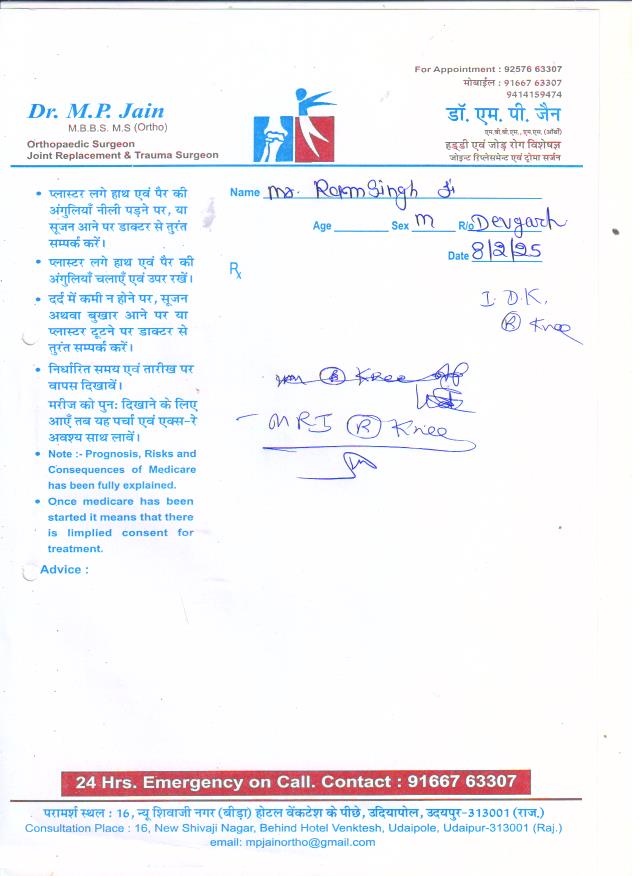 For Appointment : 92576 63307
मोबाईल : 91667 63307
9414159474
Dr. M.P. Jain
M.B.B.S. M.S (Ortho)
Orthopaedic Surgeon
Joint Replacement & Trauma Surgeon
डॉ. एम. पी. जैन
एम.बी.बी.एस., एम.एस. (ऑर्थो)
हड्डी एवं जोड़ रोग विशेषज्ञ
जोइन्ट रिप्लेसमेन्ट एवं ट्रोमा सर्जन
Name Mr. Ram Singh Ji
Age Sex M R/o Devgarh
Date 8/2/25
℞
I.D.K.
Ⓡ Knee
Ⓡ Knee AP
- MRI Ⓡ Knee
• प्लास्टर लगे हाथ एवं पैर की
अंगुलियाँ नीली पड़ने पर, या
सूजन आने पर डाक्टर से तुरंत
सम्पर्क करें।
• प्लास्टर लगे हाथ एवं पैर की
अंगुलियाँ चलाएँ एवं उपर रखें।
• दर्द में कमी न होने पर, सूजन
अथवा बुखार आने पर या
प्लास्टर टूटने पर डाक्टर से
तुरंत सम्पर्क करें।
• निर्धारित समय एवं तारीख पर
वापस दिखावें।
मरीज को पुन: दिखाने के लिए
आएँ तब यह पर्चा एवं एक्स-रे
अवश्य साथ लावें।
• Note :- Prognosis, Risks and
Consequences of Medicare
has been fully explained.
• Once medicare has been
started it means that there
is limplied consent for
treatment.
Advice :
24 Hrs. Emergency on Call. Contact : 91667 63307
परामर्श स्थल : 16, न्यू शिवाजी नगर (बीड़ा) होटल वेंकटेश के पीछे, उदियापोल, उदयपुर-313001 (राज.)
Consultation Place : 16, New Shivaji Nagar, Behind Hotel Venktesh, Udaipole, Udaipur-313001 (Raj.)
email: mpjainortho@gmail.com